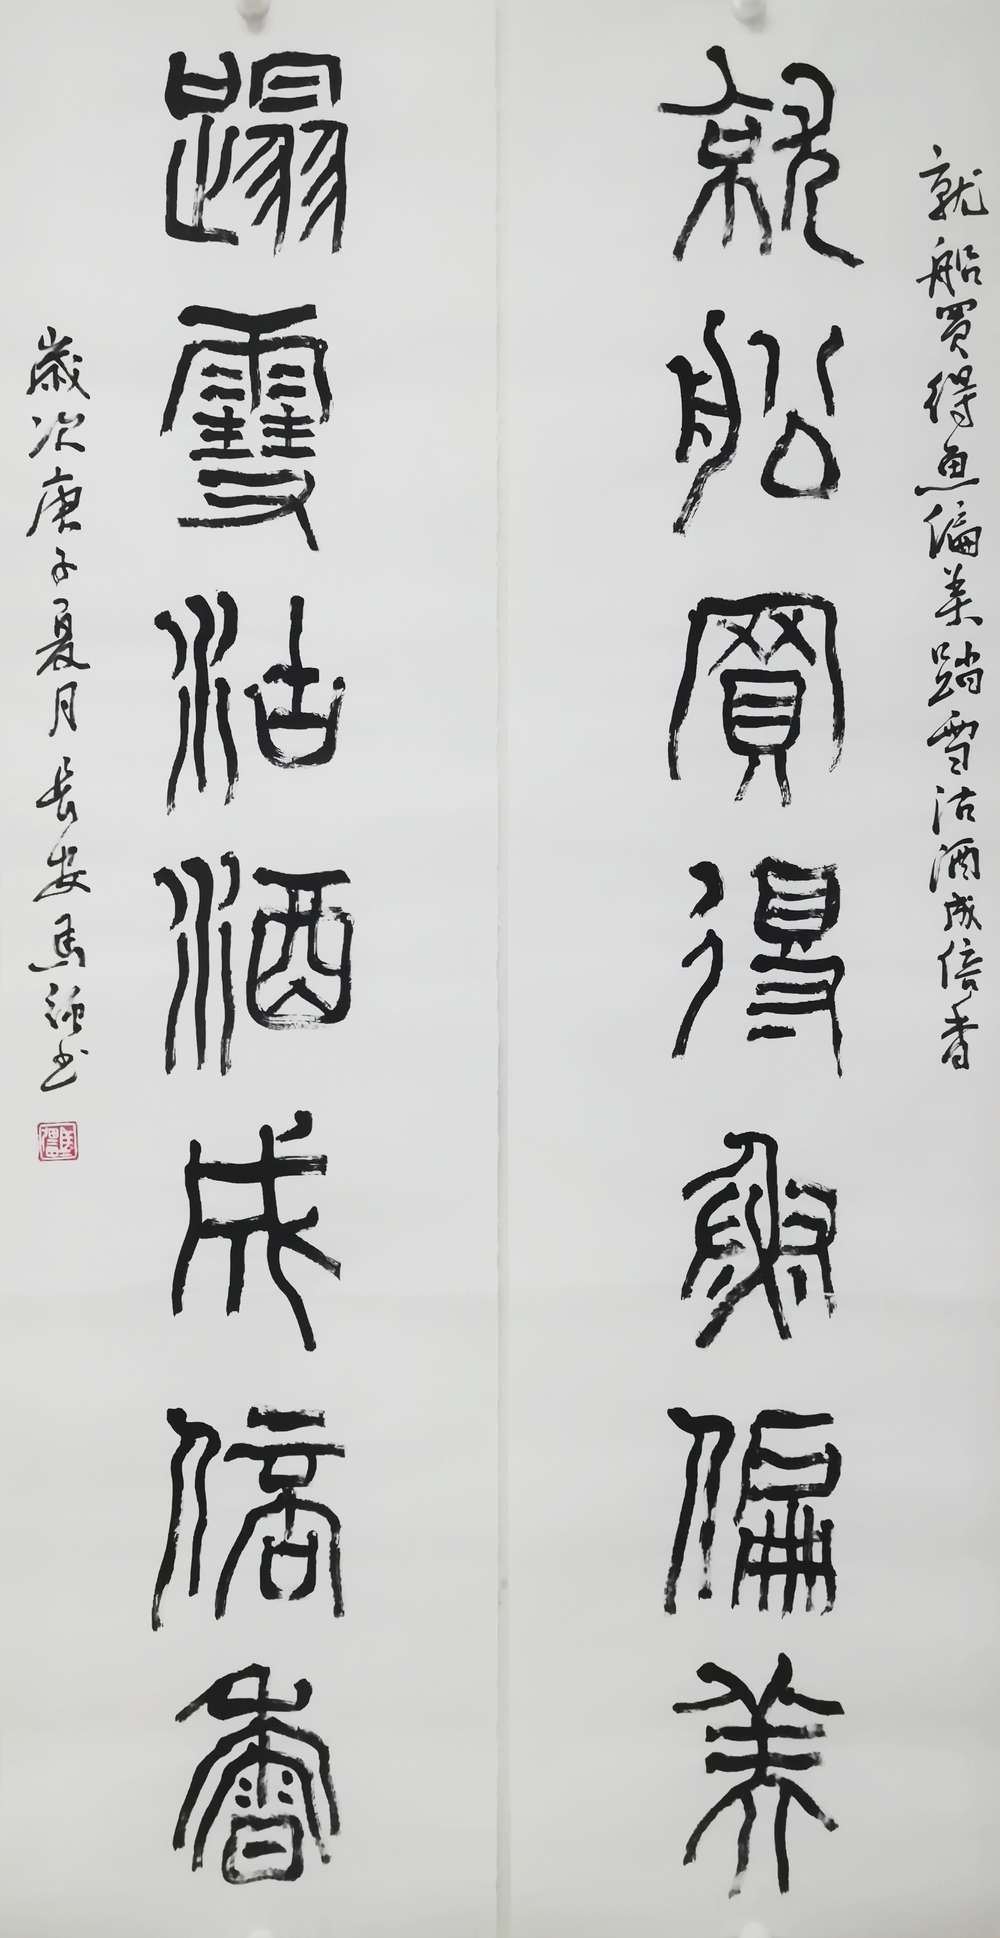 就船買得魚偏美踏雪沽酒成倍香
就船買得魚偏美
蹋雪沽酒成倍香
歲次庚子夏月長安馬強書